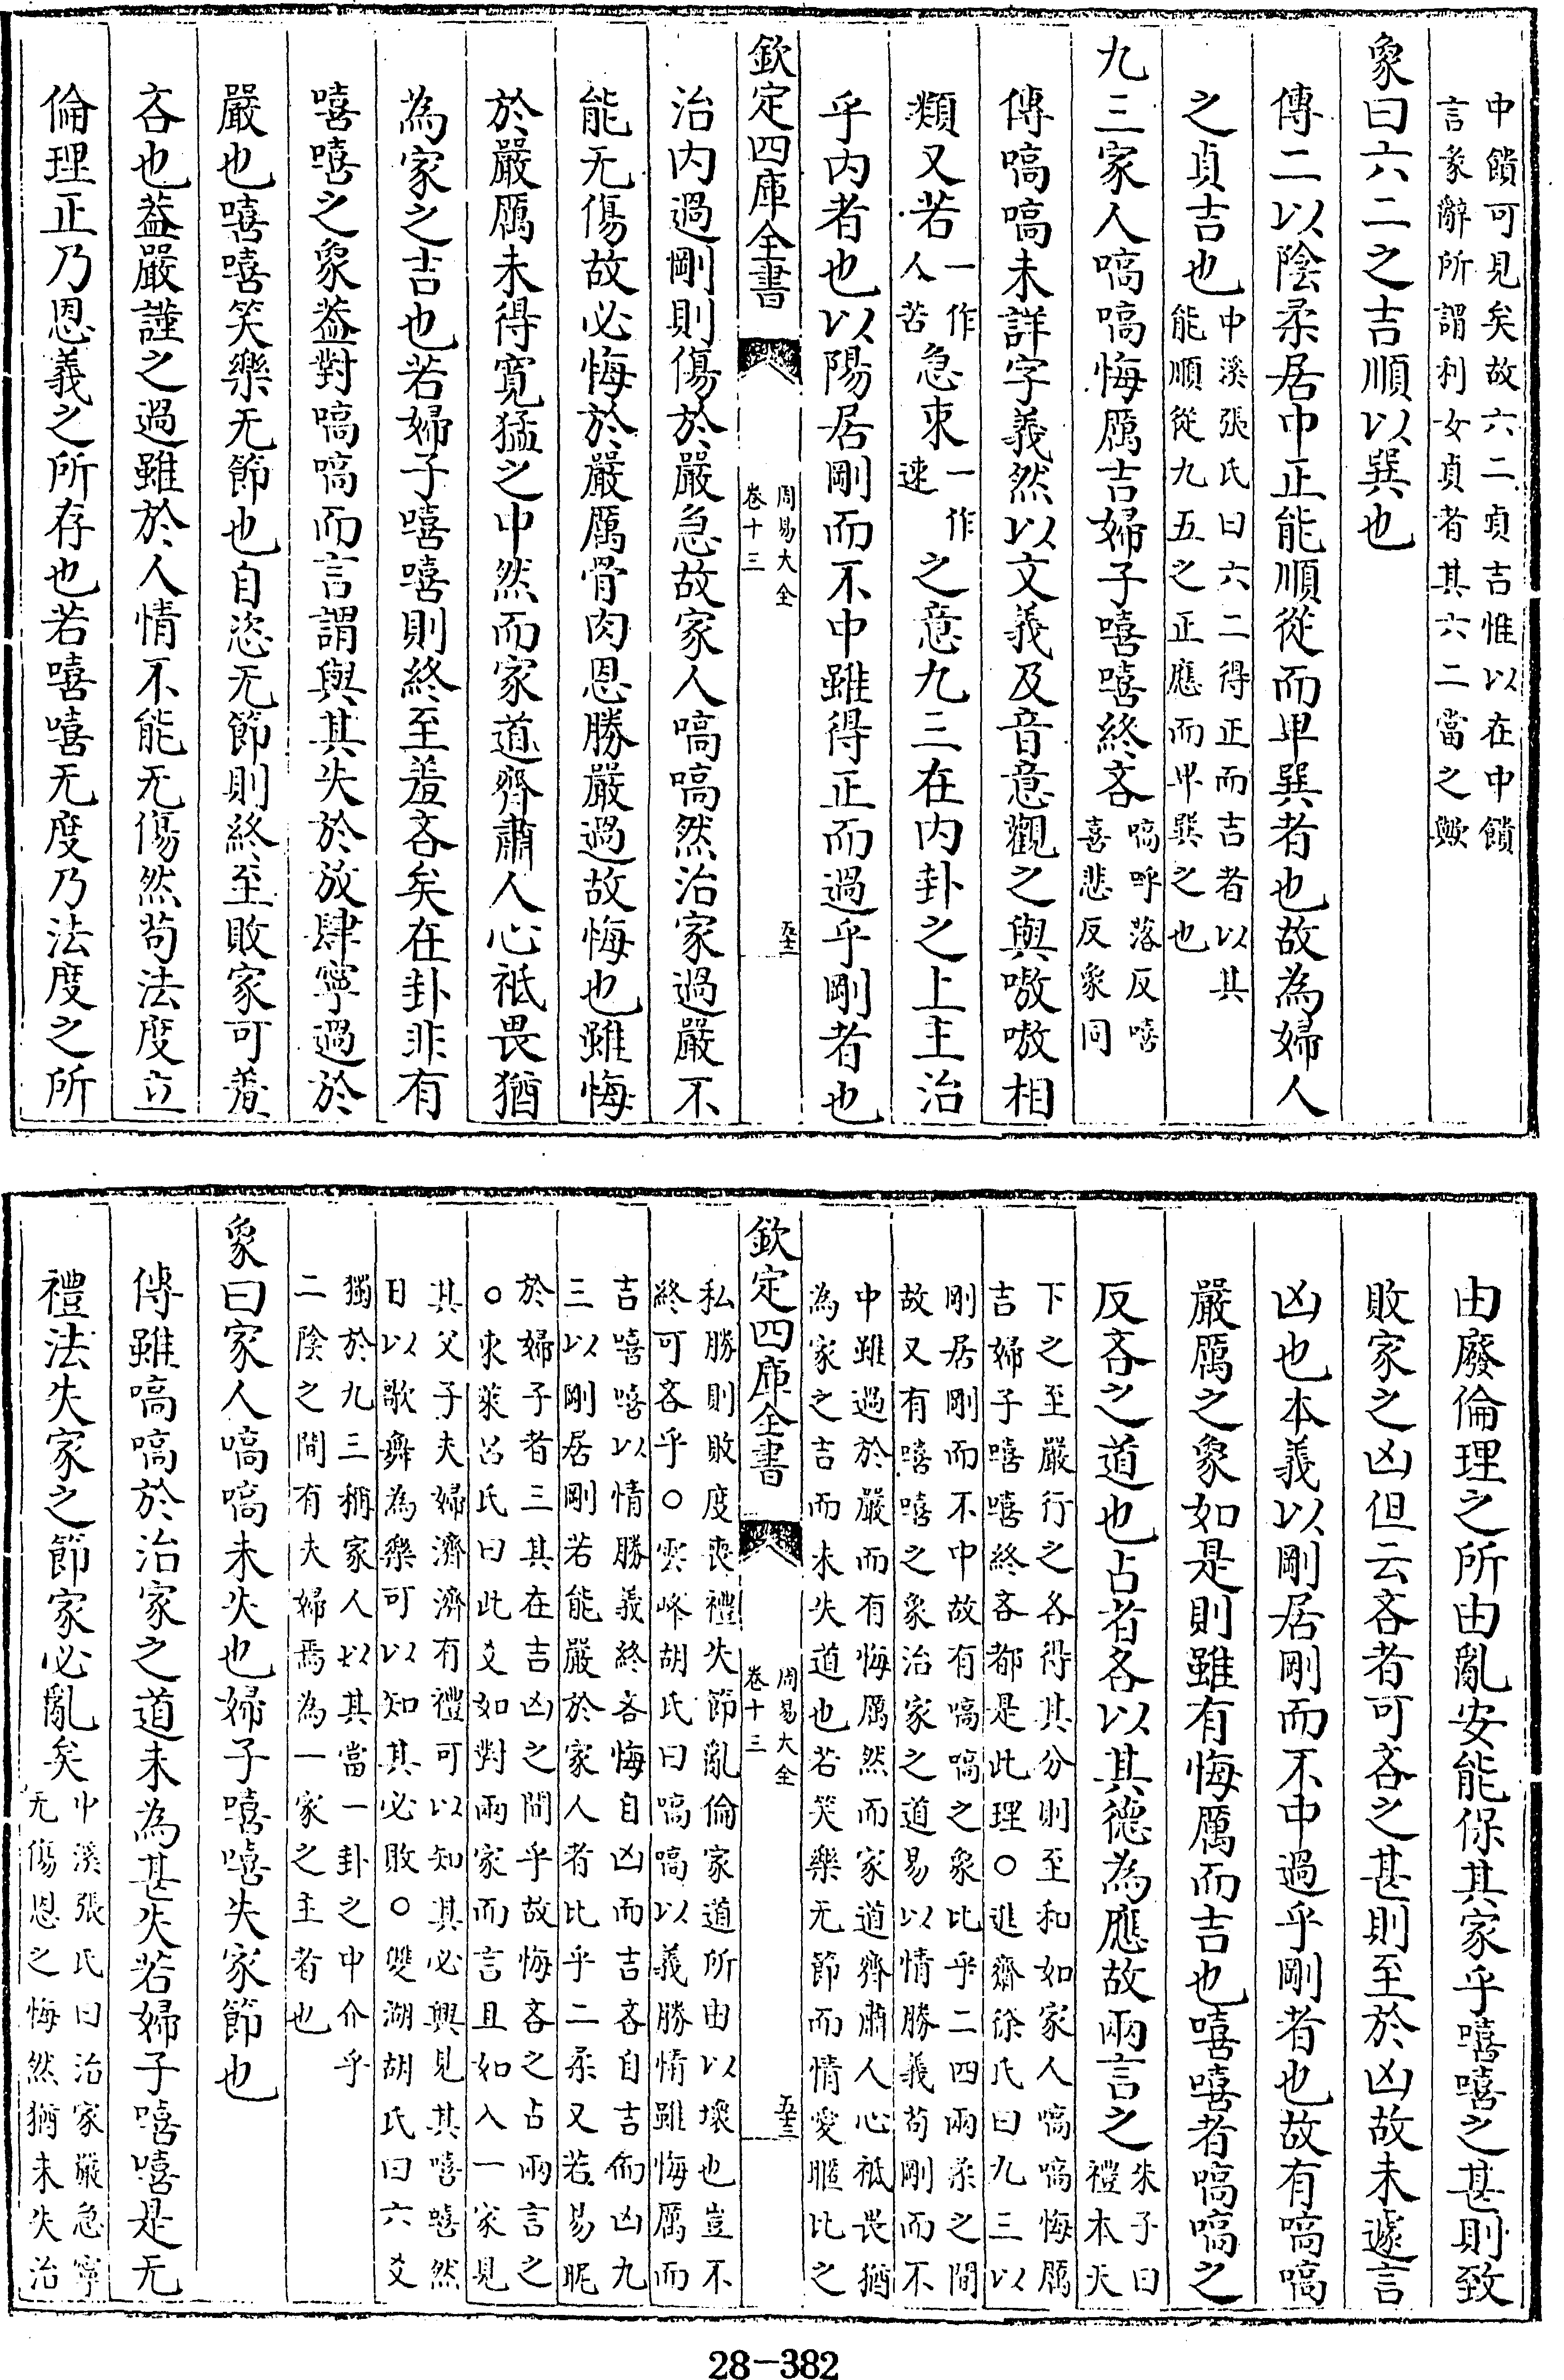 中饋可見矣故六二貞吉惟以在中饋
言彖辭所謂利女貞者其六二當之歟
象曰六二之吉順以巽也
傳二以陰柔居中正能順從而卑巽者也故為婦人
之貞吉也中溪張氏曰六二得正而吉者以其
能順從九五之正應而卑巽之也
九三家人嗃嗃悔厲吉婦子嘻嘻終吝嗃呼落反嘻
喜悲反象同
傳嗃嗃未詳字義然以文義及音意觀之與嗷嗷相
類又若一作人苦急束一作速之意九三在内卦之上主治
乎内者也以陽居剛而不中雖得正而過乎剛者也
欽定四庫全書
周易大全
卷十三
治内過剛則傷於嚴急故家人嗃嗃然治家過嚴不
能无傷故必悔於嚴厲骨肉恩勝嚴過故悔也雖悔
於嚴厲未得寛猛之中然而家道齊肅人心祗畏猶
為家之吉也若婦子嘻嘻則終至羞吝矣在卦非有
嘻嘻之象葢對嗃嗃而言謂與其失於放肆寧過於
嚴也嘻嘻笑樂无節也自恣无節則終至敗家可羞
吝也葢嚴謹之過雖於人情不能无傷然苟法度立
倫理正乃恩義之所存也若嘻嘻无度乃法度之所
由廢倫理之所由亂安能保其家乎嘻嘻之甚則致
敗家之凶但云吝者可吝之甚則至於凶故未遽言
凶也本義以剛居剛而不中過乎剛者也故有嗃嗃
嚴厲之象如是則雖有悔厲而吉也嘻嘻者嗃嗃之
反吝之道也占者各以其德為應故兩言之朱子曰
禮本天
下之至嚴行之各得其分則至和如家人嗃嗃悔厲
吉婦子嘻嘻終吝都是此理○進齋徐氏曰九三以
剛居剛而不中故有嗃嗃之象比乎二四兩柔之間
故又有嘻嘻之象治家之道易以情勝義苟剛而不
中雖過於嚴而有悔厲然而家道齊肅人心祗畏猶
為家之吉而未失道也若笑樂无節而情愛暱比之
欽定四庫全書
周易大全
卷十三
私勝則敗度喪禮失節亂倫家道所由以壞也豈不
終可吝乎○雲峰胡氏曰嗃嗃以義勝情雖悔厲而
吉嘻嘻以情勝義終吝悔自凶而吉吝自吉而凶九
三以剛居剛若能嚴於家人者比乎二柔又若易昵
於婦子者三其在吉凶之間乎故悔吝之占兩言之
○東萊呂氏曰此爻如對兩家而言且如入一家見
其父子夫婦濟濟有禮可以知其必興見其嘻嘻然
日以歌舞為樂可以知其必敗○雙湖胡氏曰六爻
獨於九三稱家人以其當一卦之中介乎
二陰之間有夫婦焉為一家之主者也
象曰家人嗃嗃未失也婦子嘻嘻失家節也
傳雖嗃嗃於治家之道未為甚失若婦子嘻嘻是无
禮法失家之節家必亂矣中溪張氏曰治家嚴急寧
无傷恩之悔然猶未失治
28-382